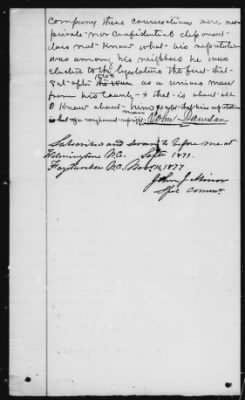 company these conversations were not
private - nor confidential deponent
does not know what his reputation
was among his neighbors he was
elected to the legislature the first
after the war as a union man
from his County - & that is about all
I know about him except that his reputation
is that of a
Subscribed and sworn to before me at
Wilmington N.C. Sept 1877.
Fayetteville N.C. Nov. 1877
John J. Minor
Spl Commr.